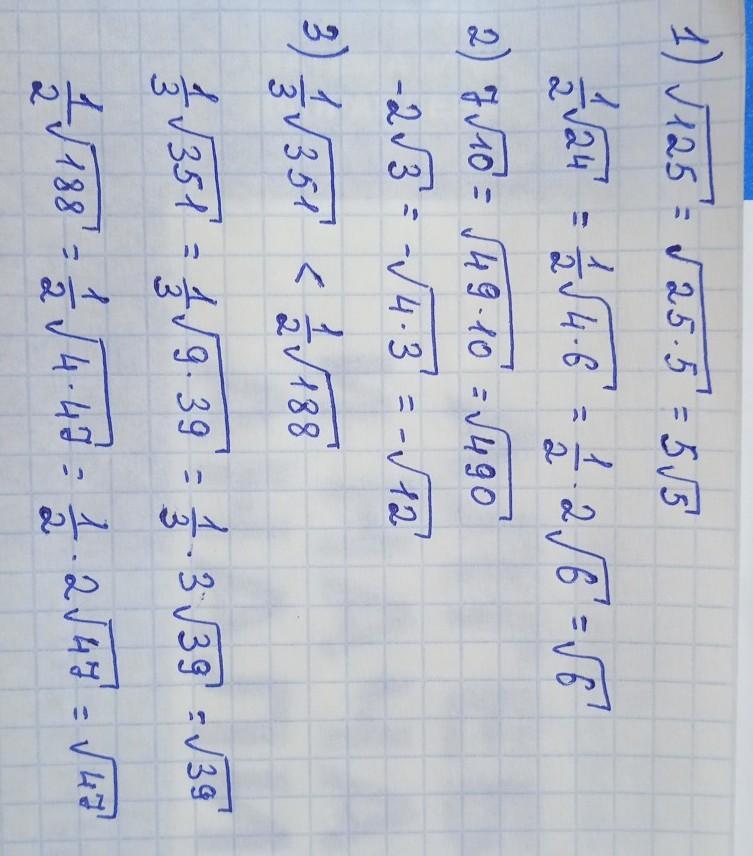 1) √125 = √25·5 = 5√5
1/2√24 = 1/2√4·6 = 1/2·2√6 = √6
2) 7√10 = √49·10 = √490
-2√3 = -√4·3 = -√12
3) 1/3√351 < 1/2√188
1/3√351 = 1/3√9·39 = 1/3·3√39 = √39
1/2√188 = 1/2√4·47 = 1/2·2√47 = √47